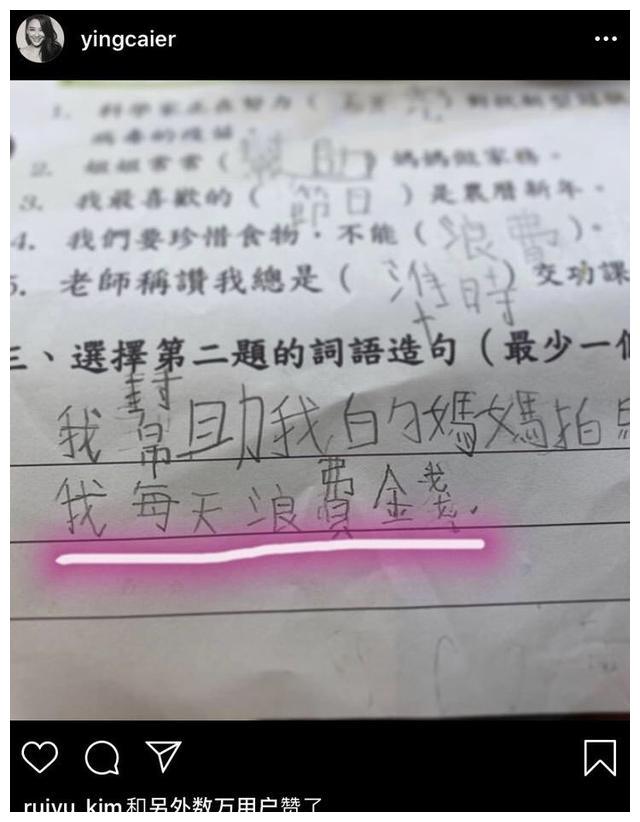 yingcaier
1. 科學家正在努力（ ）對抗新型冠狀
病毒的疫苗。
2. 姐姐常常（幫助）媽媽做家務。
3. 我最喜歡的（節日）是農曆新年。
4. 我們要珍惜食物，不能（浪費）。
5. 老師稱讚我總是（準時）交功課
三、選擇第二題的詞語造句（最少一個
我幫助我的媽媽拍
我每天浪費金錢。
ruiyu_kim和另外数万用户赞了